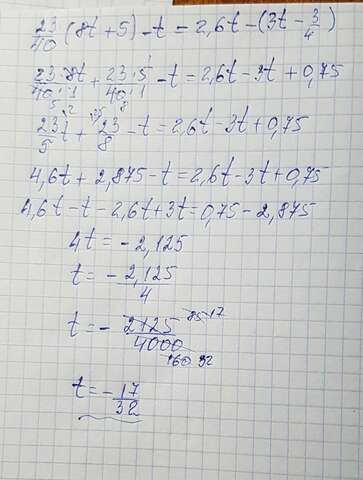 23/40 (8t + 5) - t = 2,6t - (3t - 3/4)
23·8t/40·1 + 23·5/40·1 - t = 2,6t - 3t + 0,75
5 8
23t/5 + 23/8 - t = 2,6t - 3t + 0,75
4,6t + 2,875 - t = 2,6t - 3t + 0,75
4,6t - t - 2,6t + 3t = 0,75 - 2,875
4t = - 2,125
t = - 2,125/4
t = - 2125/4000 85 17
160 32
t = - 17/32